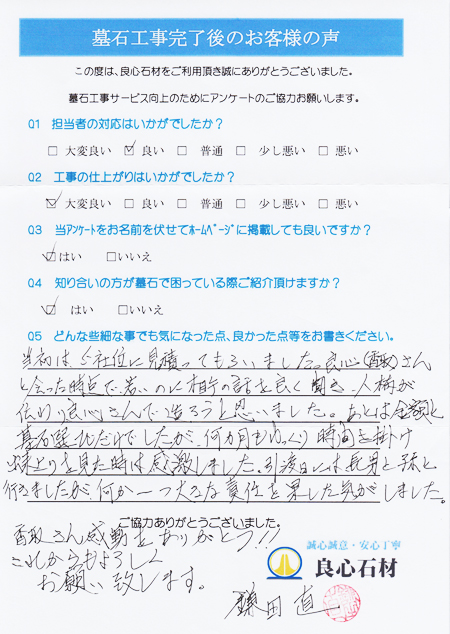 墓石工事完了後のお客様の声
この度は、良心石材をご利用頂き誠にありがとうございました。
墓石工事サービス向上のためにアンケートのご協力お願いします。
Q1 担当者の対応はいかがでしたか？
□ 大変良い ☑ 良い □ 普通 □ 少し悪い □ 悪い
Q2 工事の仕上がりはいかがでしたか？
☑ 大変良い □ 良い □ 普通 □ 少し悪い □ 悪い
Q3 当ｱﾝｹｰﾄをお名前を伏せてﾎｰﾑﾍﾟｰｼﾞに掲載しても良いですか？
☑はい □いいえ
Q4 知り合いの方が墓石で困っている際ご紹介頂けますか？
☑ はい □いいえ
Q5 どんな些細な事でも気になった点、良かった点等をお書きください。
当初は、5社位に見積ってもらいました。良心(香取)さん
と会った時点で、若いのに相手の話を良く聞き、人柄が
伝わり良心さんで造ろうと思いました。あとは金額と
墓石選びだけでしたが、何カ月もゆっくり時間を掛け
見た時は感激しました。引渡日には長男と孫と
行きましたが、何か一つ大きな責任を果した気がしました。
ご協力ありがとうございました。
香取さん感動をありがとう!!
これからもよろしく
お願い致します。
誠心誠意・安心丁寧
良心石材
鎌田 直